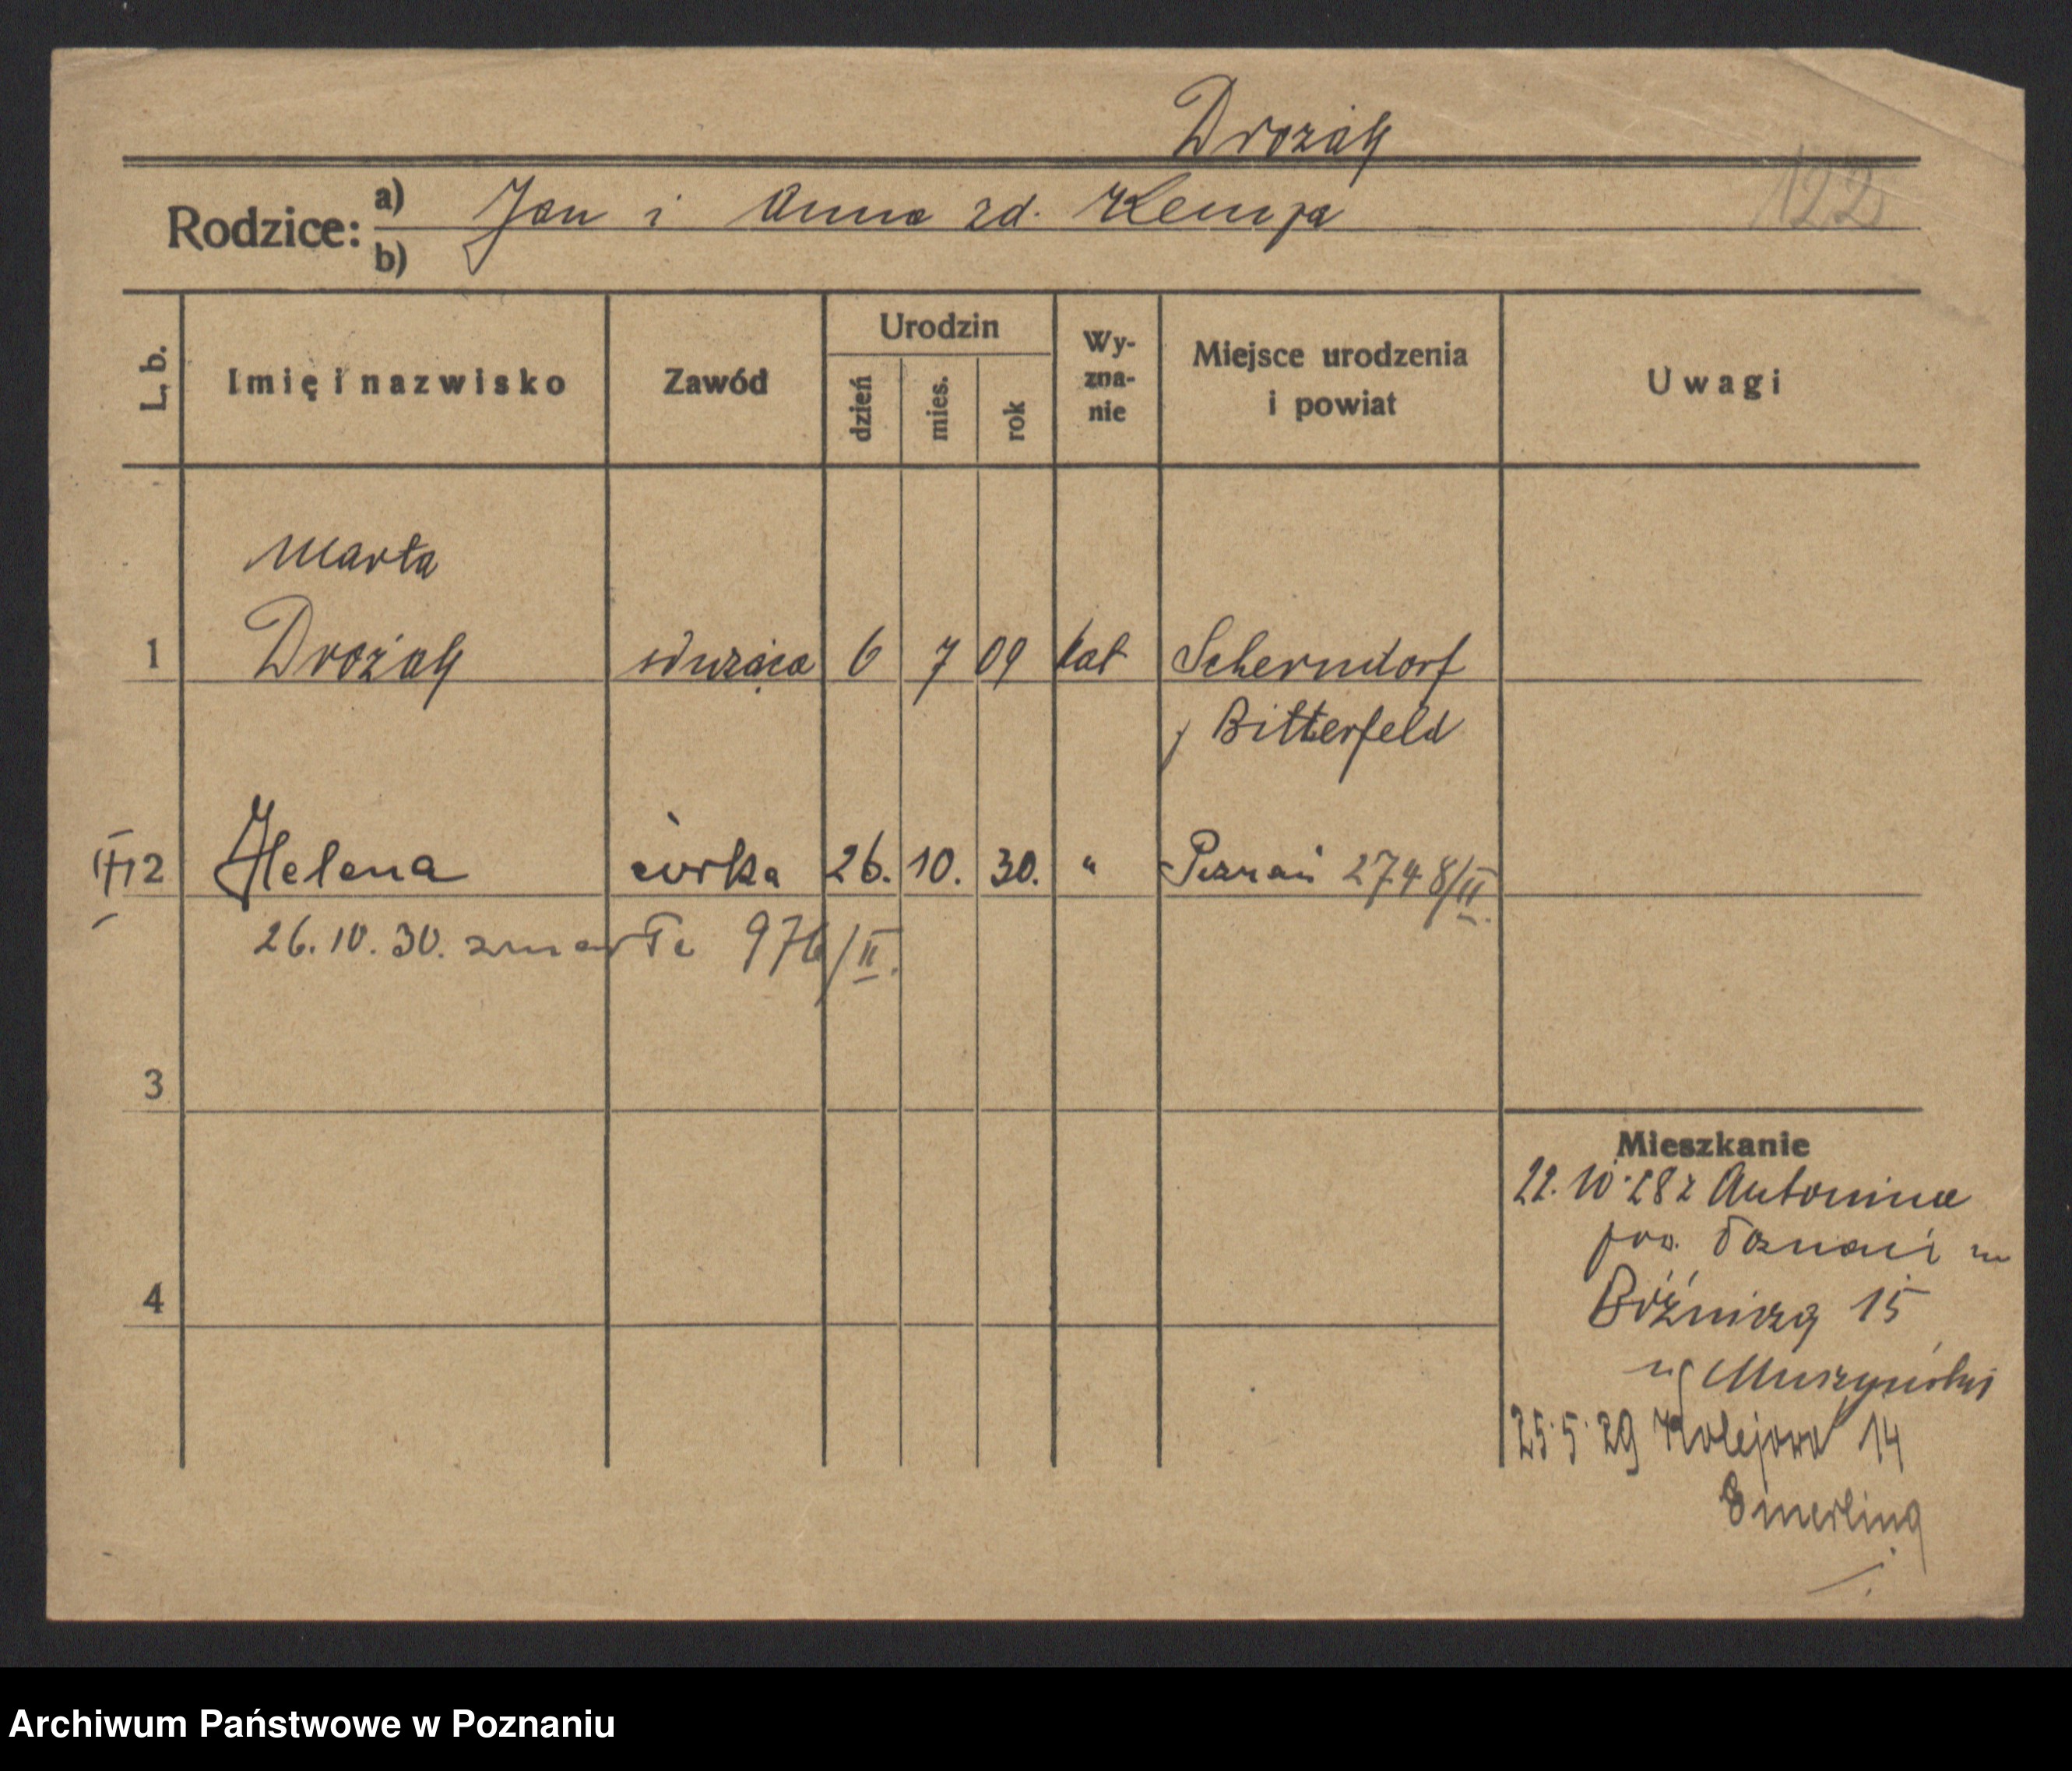 Drożak
122
Rodzice: a) Jan i Anna zd. Kempa
b)
L. b.
Imię i nazwisko
Zawód
Urodzin
dzień
mies.
rok
Wy-
zna-
nie
Miejsce urodzenia
i powiat
Uwagi
Marta
1 Drożak służąca 6 7 09 kat Scherndorf
p Bitterfeld
2 Helena córka 26. 10. 30. " Poznań 2748/II.
26.10.30. zmarła 976/II.
3
4
Mieszkanie
22.10.28 z Antonina
pow. Poznań
Bóźnicza 15
Muszyński
25.5.29 Kolejowa 14
Emerling
Archiwum Państwowe w Poznaniu